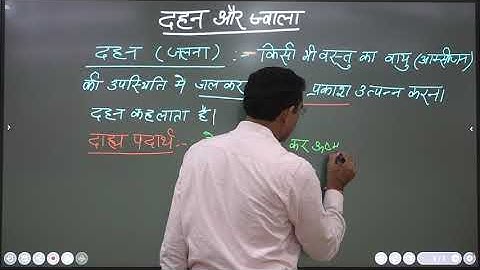 दहन और ज्वाला
दहन (जलना) :- किसी भी वस्तु का वायु (आक्सीजन)
की उपस्थिति में जलकर प्रकाश उत्पन्न करना
दहन कहलाता है।
दाह्य पदार्थ :- कर